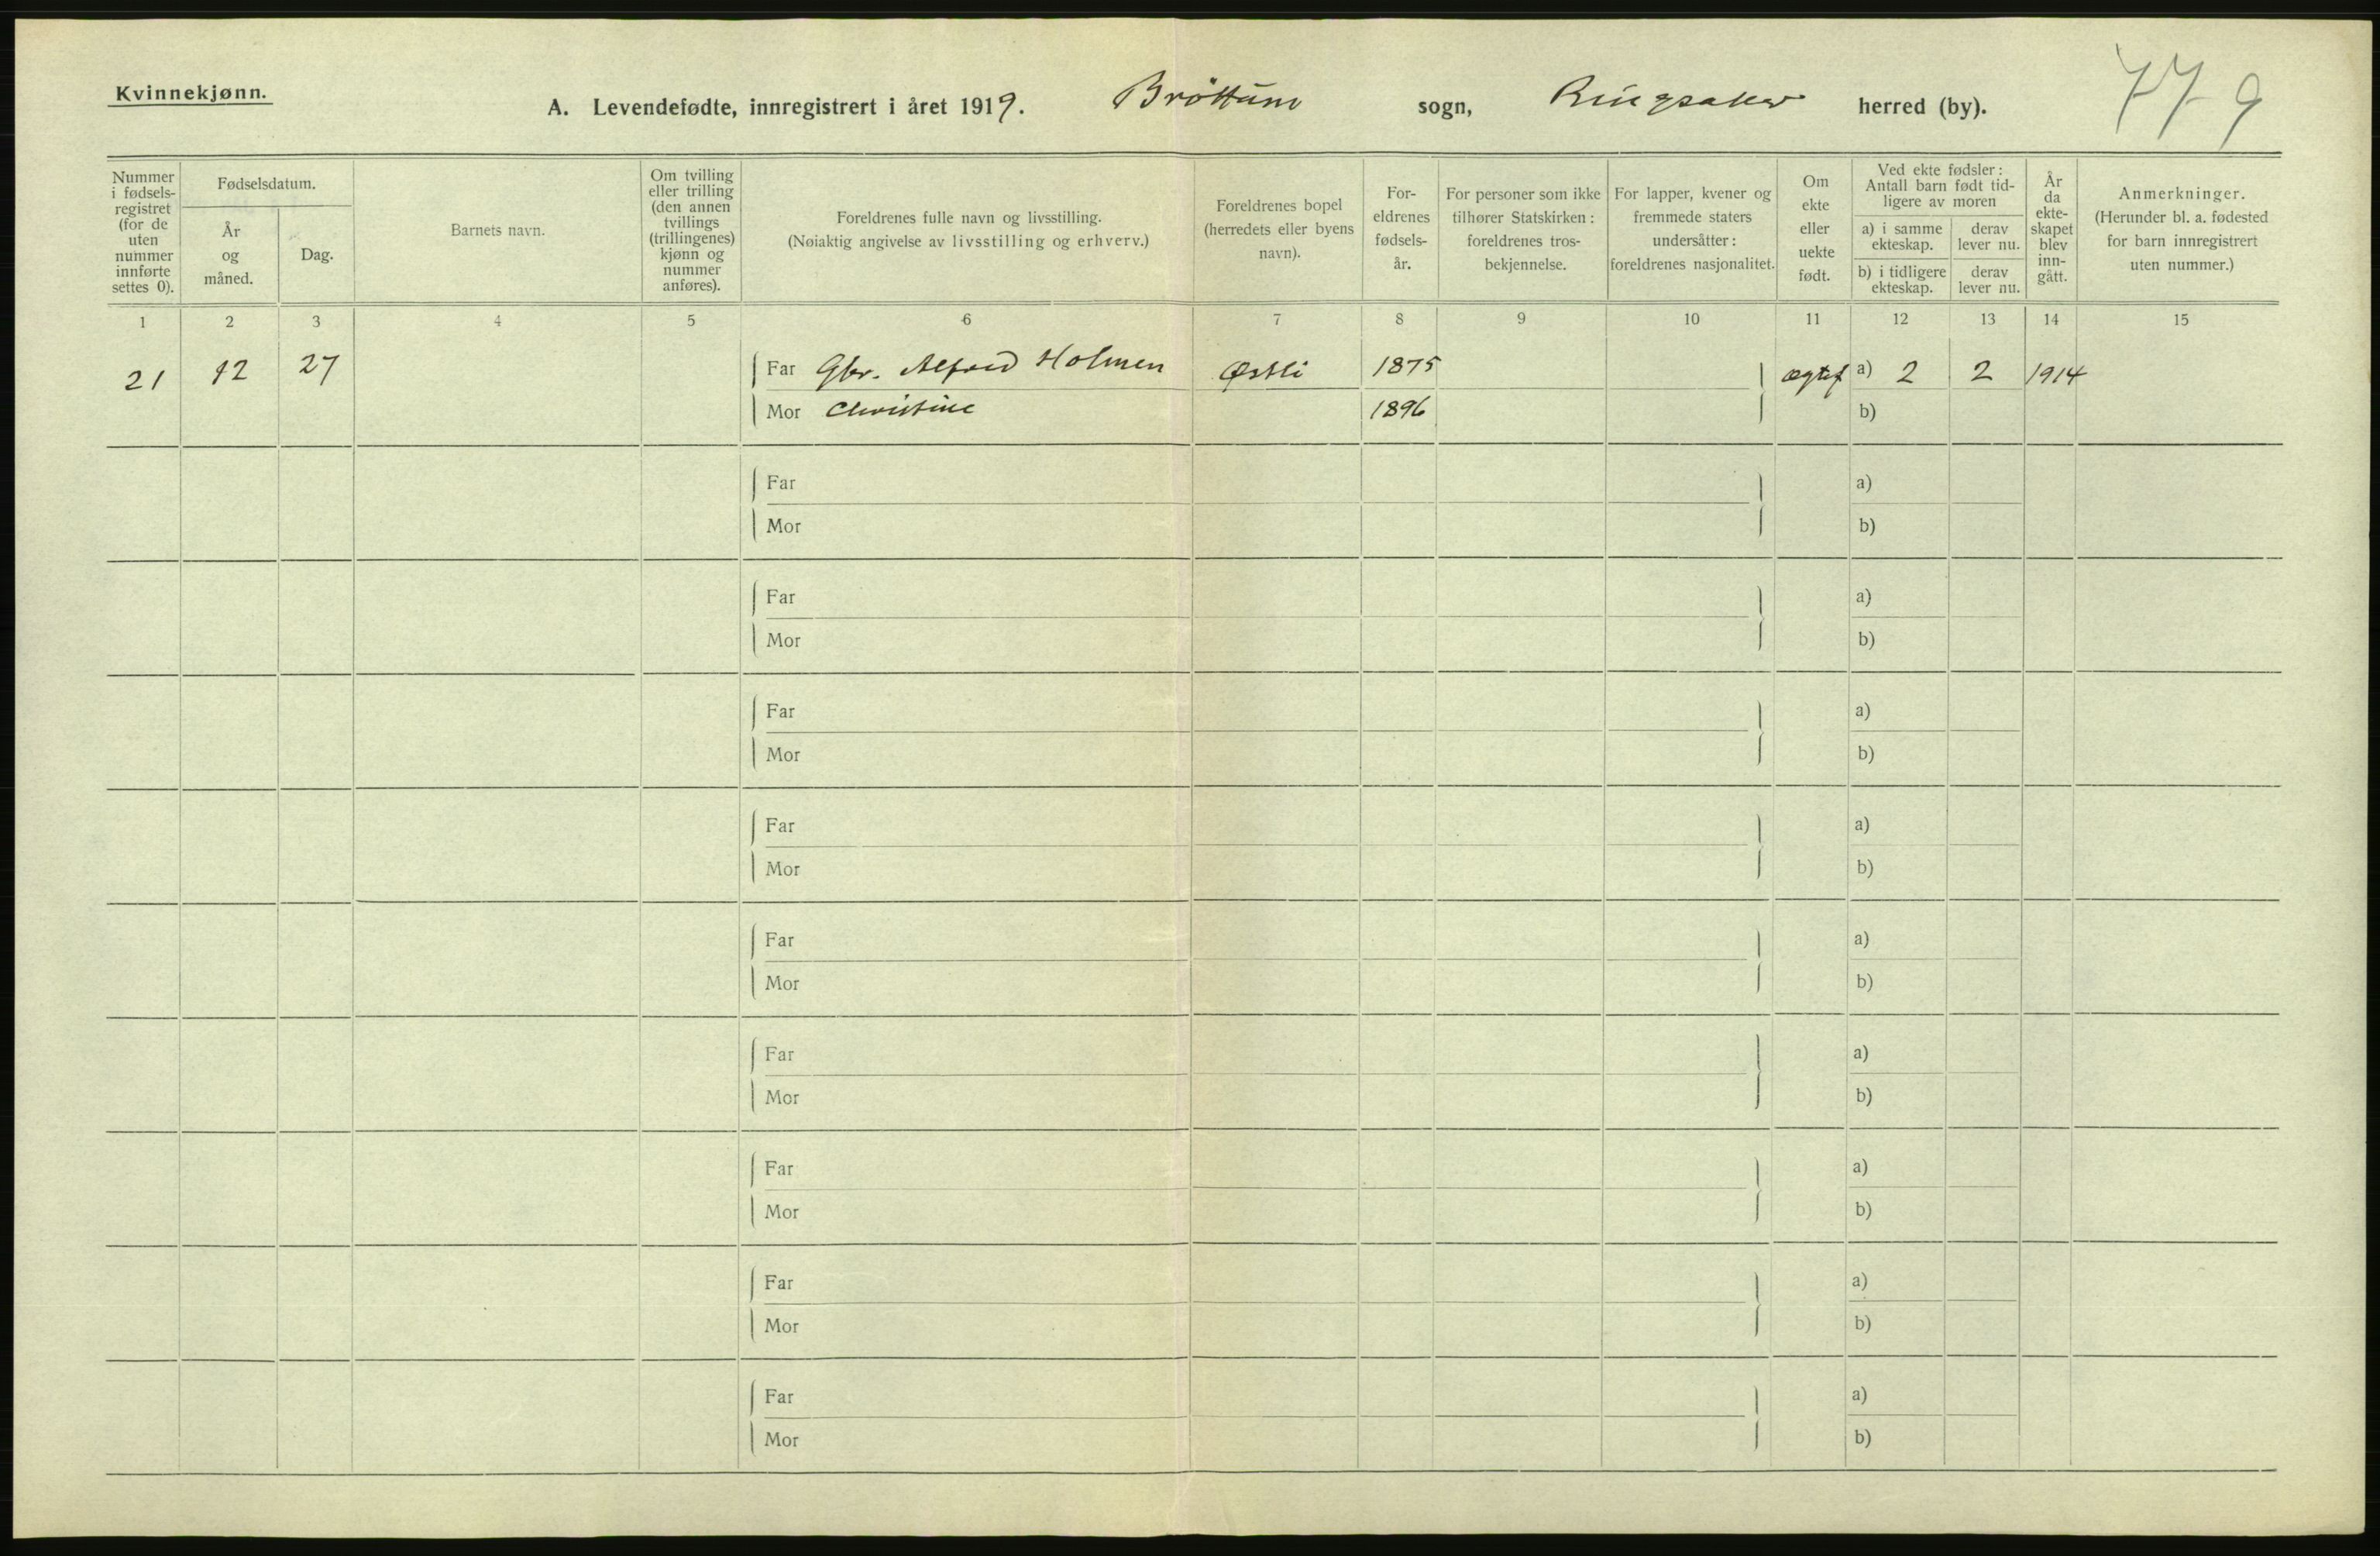 Kvinnekjønn.
A. Levendefødte, innregistrert i året 1919. Bröttum sogn, Ringsaker herred (by).
77 9
Nummer i fødsels-registret (for de uten nummer innførte settes 0).
Fødselsdatum.
År og måned.
Dag.
Barnets navn.
Om tvilling eller trilling (den annen tvillings (trillingenes) kjønn og nummer anføres).
Foreldrenes fulle navn og livsstilling.
(Nøiaktig angivelse av livsstilling og erhverv.)
Foreldrenes bopel (herredets eller byens navn).
For-eldrenes fødsels-år.
For personer som ikke tilhører Statskirken: foreldrenes tros-bekjennelse.
For lapper, kvener og fremmede staters undersåtter: foreldrenes nasjonalitet.
Om ekte eller uekte født.
Ved ekte fødsler: Antall barn født tid-ligere av moren
a) i samme ekteskap.
derav lever nu.
b) i tidligere ekteskap.
derav lever nu.
År da ekte-skapet blev inn-gått.
Anmerkninger.
(Herunder bl. a. fødested for barn innregistrert uten nummer.)
1 2 3 4 5 6 7 8 9 10 11 12 13 14 15
21 12 27 Far Gbr. Alfred Holmen Østli 1875 ægtef a) 2 2 1914
Mor Christine 1896 b)
Far a)
Mor b)
Far a)
Mor b)
Far a)
Mor b)
Far a)
Mor b)
Far a)
Mor b)
Far a)
Mor b)
Far a)
Mor b)
Far a)
Mor b)
Far a)
Mor b)